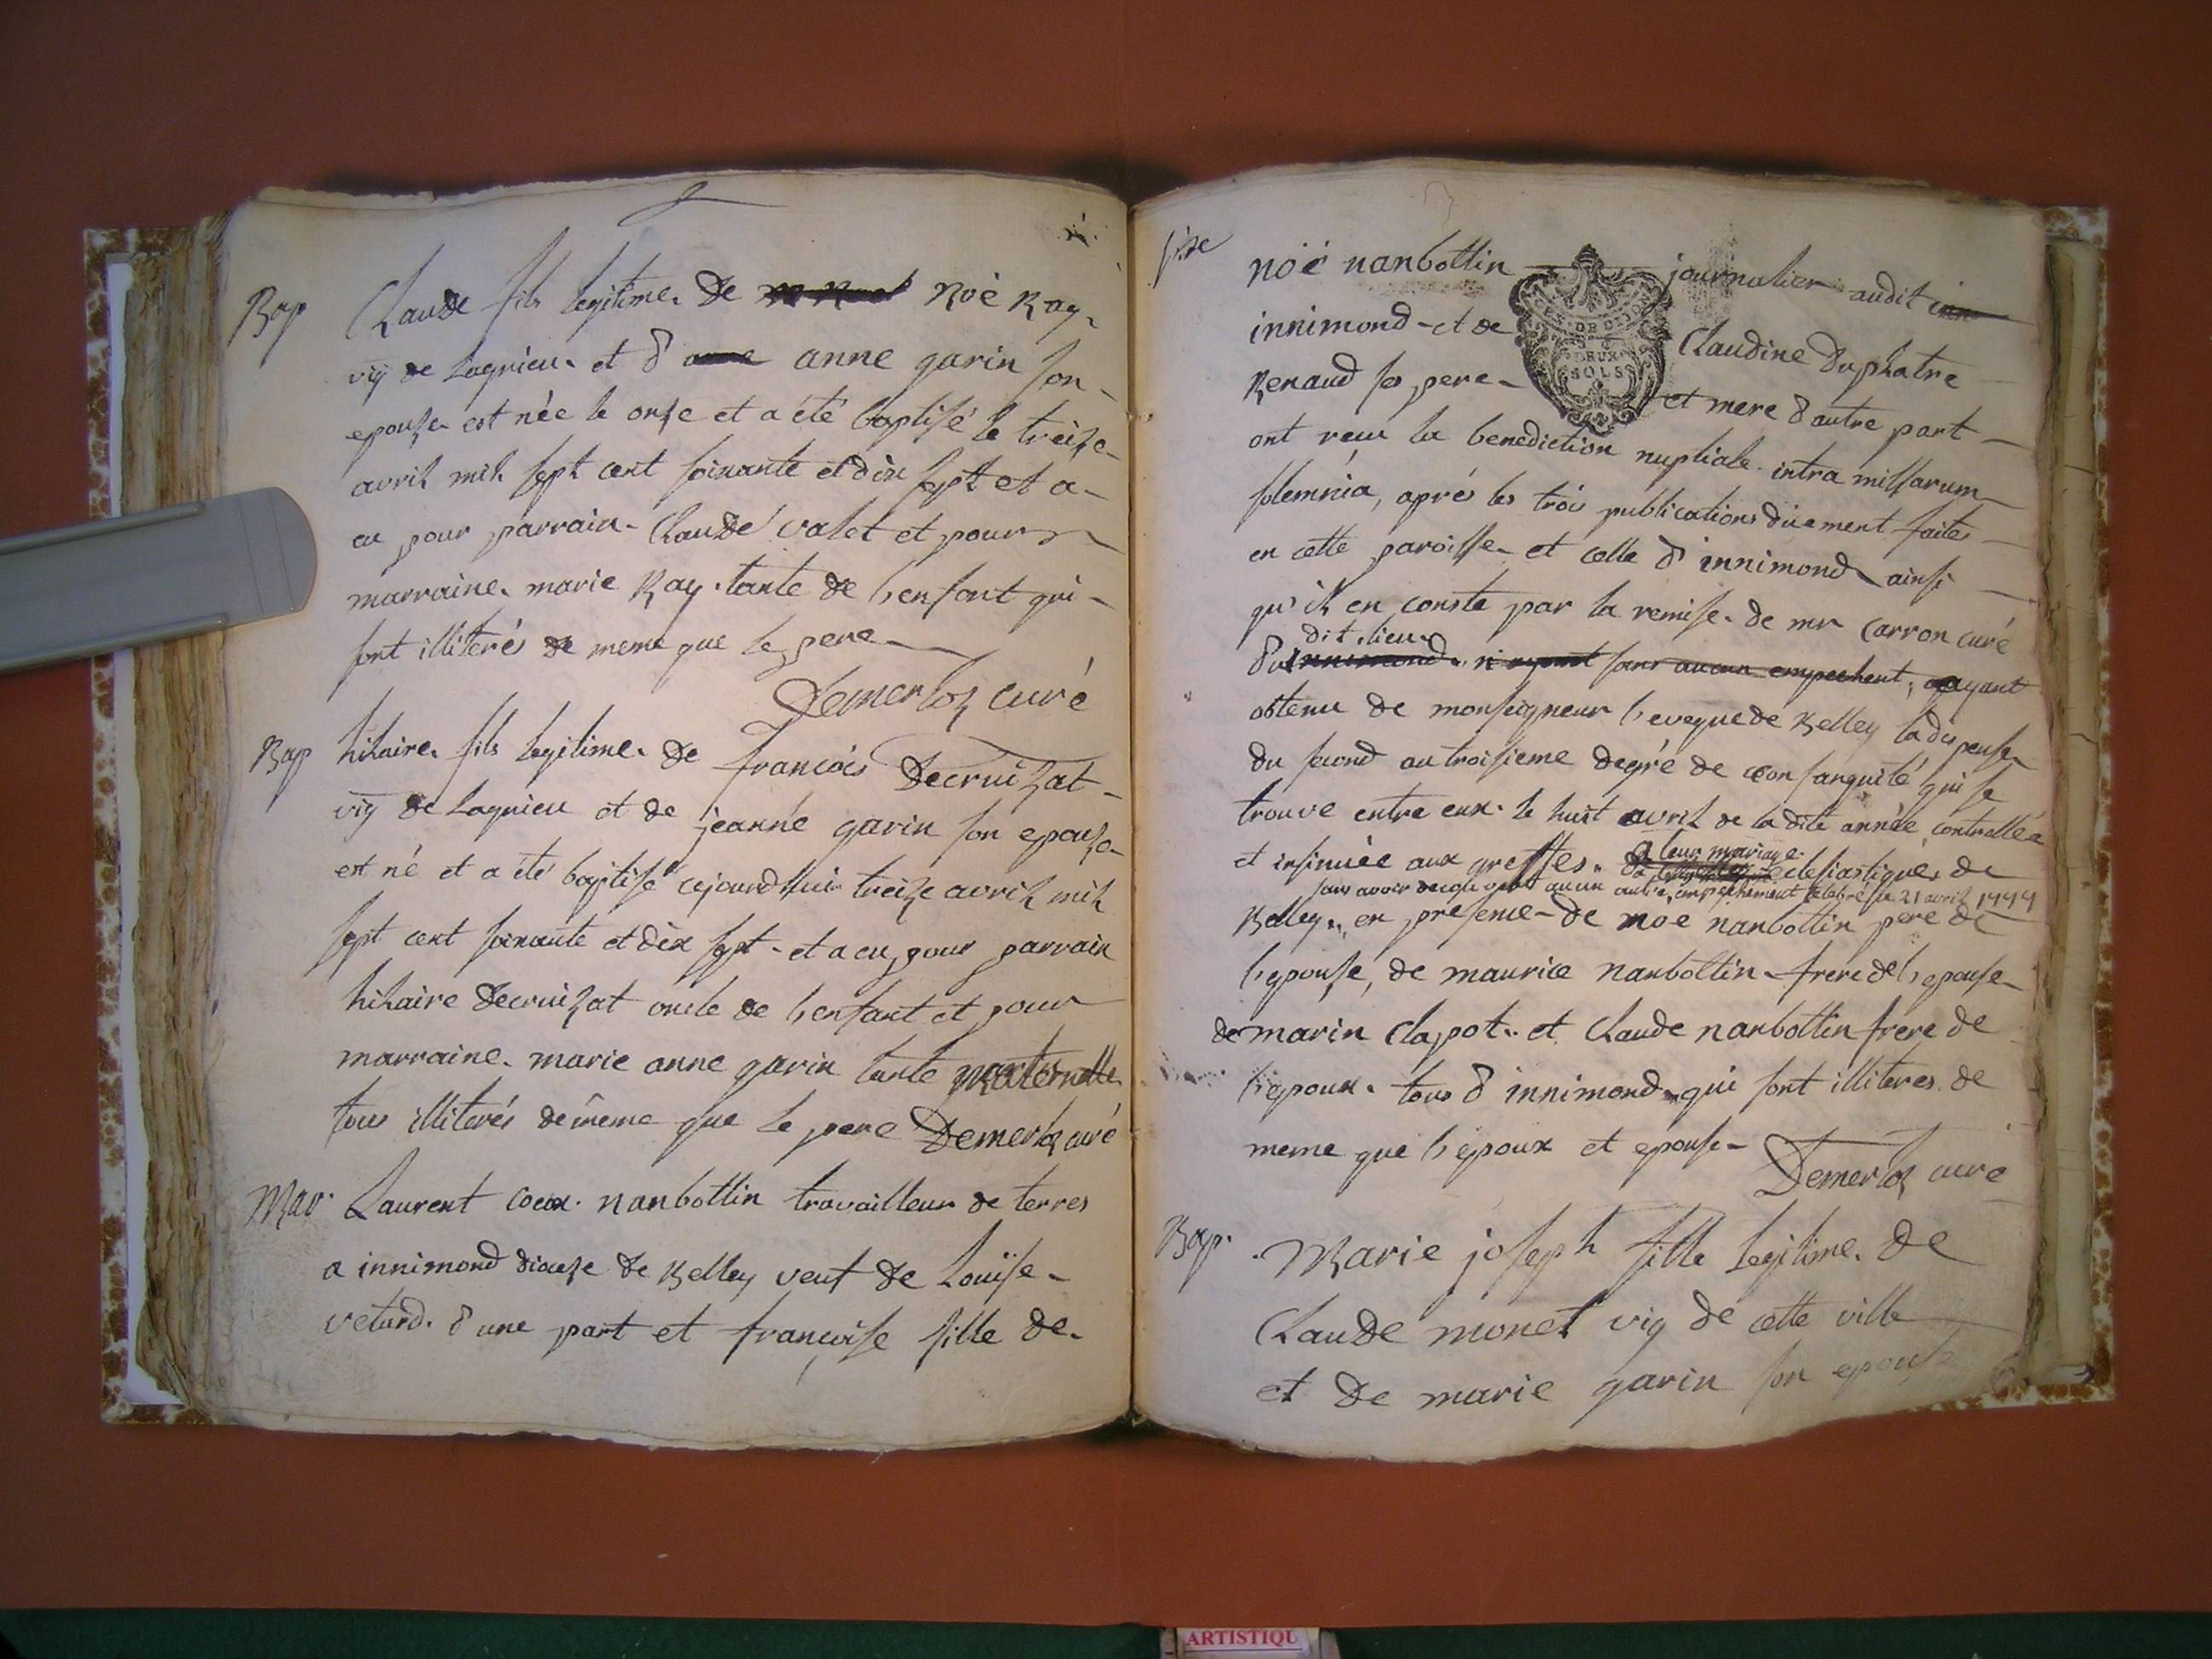 Bap Claude fils legitime de Noè Ray
vig de Lagnieu et d'anne garin son
epouse est née le onse et a été baptisé le treize
avril mil sept cent soixante et dix sept et a
eu pour parrain Claude valet et pour
marraine marie Ray tante de l'enfant qui
sont illiterés de meme que le pere
Demerloz curé
Bap hilaire fils legitime de francois Decruizat
vig de Lagnieu et de jeanne garin son epouse
est né et a été baptisé cejourdhui treize avril mil
sept cent soixante et dix sept et a eu pour parrain
hilaire Decruizat oncle de l'enfant et pour
marraine marie anne garin tante maternelle
tous illiterés de même que le pere Demerloz curé
Mar Laurent nanbottin travailleur de terres
a innimond diocese de Belley veuf de Louïse
vetard d'une part et francoise fille de
noé nanbottin journalier audit inn
innimond et de Claudine Duplatre
GEN DE DIJON
DEUX
SOLS
Renaud ses pere et mere d'autre part
ont reçu la benediction nuptiale intra missarum
solemnia, apré les trois publications düement faites
en cette paroisse et celle d'innimond ainsi
qu'il en conste par la remise de mr Carron curé
dit lieu
du innimond n ayant sans aucun empechent, ayant
obtenu de monseigneur l'eveque de Belley la dispense
du second au troisieme degré de consanguité qui se
trouve entre eux le huit avril de la dite année controllée
a leur mariage
et insinuée aux greffes eclesiastiques de
sans avoir decouvert aucun autre empechement celebré le 21 avril 1777
Belley, en presence de noe nanbottin pere de
l'epouse, de maurice nanbottin frere de l'epouse
de marin Clapot et Claude nanbottin frere de
l'epoux tous d'innimond qui sont illiteres de
meme que l'epoux et epouse
Demerloz curé
Bap. Marie joseph fille legitime de
Claude monet vig de cette ville
et de marie garin son epouse
ARTISTIQU